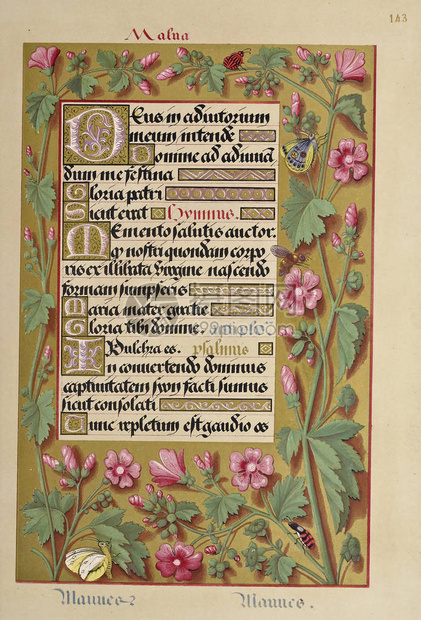 143
Malua
Deus in adiutorium
meum intende
Domine ad adiuuan
dum me festina
Gloria patri
Sicut erat Hymnus.
Memento salutis auctor.
Qz nostri quondam corpo
ris ex illibata Virgine nascendo
formam sumpseris
Maria mater gratie
Gloria tibi domine.
Pulchra es. psalmus
In conuertendo dominus
captiuitatem syon facti sumus
sicut consolati
Tunc repletum est gaudio os
Mauues
Mauues.